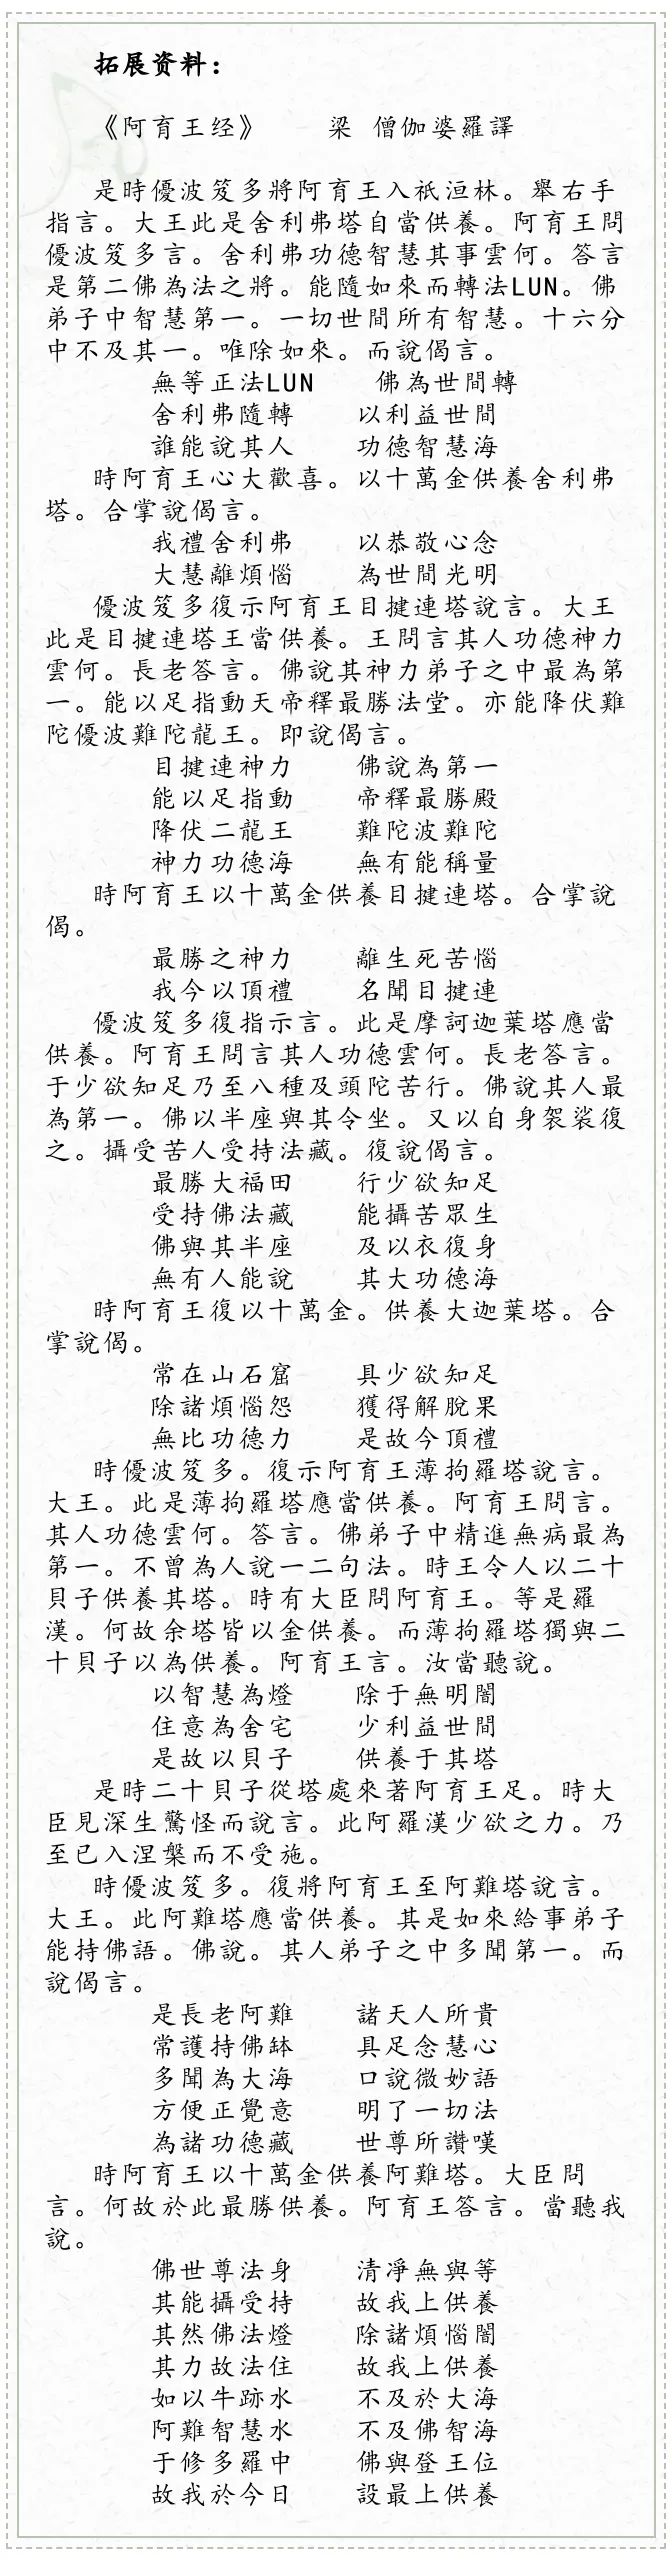 拓展资料：
《阿育王经》 梁 僧伽婆羅譯
是時優波笈多將阿育王入祇洹林。舉右手
指言。大王此是舍利弗塔自當供養。阿育王問
優波笈多言。舍利弗功德智慧其事雲何。答言
是第二佛為法之將。能隨如來而轉法LUN。佛
弟子中智慧第一。一切世間所有智慧。十六分
中不及其一。唯除如來。而說偈言。
無等正法LUN 佛為世間轉
舍利弗隨轉 以利益世間
誰能說其人 功德智慧海
時阿育王心大歡喜。以十萬金供養舍利弗
塔。合掌說偈言。
我禮舍利弗 以恭敬心念
大慧離煩惱 為世間光明
優波笈多復示阿育王目揵連塔說言。大王
此是目揵連塔王當供養。王問言其人功德神力
雲何。長老答言。佛說其神力弟子之中最為第
一。能以足指動天帝釋最勝法堂。亦能降伏難
陀優波難陀龍王。即說偈言。
目揵連神力 佛說為第一
能以足指動 帝釋最勝殿
降伏二龍王 難陀波難陀
神力功德海 無有能稱量
時阿育王以十萬金供養目揵連塔。合掌說
偈。
最勝之神力 離生死苦惱
我今以頂禮 名聞目揵連
優波笈多復指示言。此是摩訶迦葉塔應當
供養。阿育王問言其人功德雲何。長老答言。
于少欲知足乃至八種及頭陀苦行。佛說其人最
為第一。佛以半座與其令坐。又以自身袈裟復
之。攝受苦人受持法藏。復說偈言。
最勝大福田 行少欲知足
受持佛法藏 能攝苦眾生
佛與其半座 及以衣復身
無有人能說 其大功德海
時阿育王復以十萬金。供養大迦葉塔。合
掌說偈。
常在山石窟 具少欲知足
除諸煩惱怨 獲得解脫果
無比功德力 是故今頂禮
時優波笈多。復示阿育王薄拘羅塔說言。
大王。此是薄拘羅塔應當供養。阿育王問言。
其人功德雲何。答言。佛弟子中精進無病最為
第一。不曾為人說一二句法。時王令人以二十
貝子供養其塔。時有大臣問阿育王。等是羅
漢。何故余塔皆以金供養。而薄拘羅塔獨與二
十貝子以為供養。阿育王言。汝當聽說。
以智慧為燈 除于無明闇
住意為舍宅 少利益世間
是故以貝子 供養于其塔
是時二十貝子從塔處來著阿育王足。時大
臣見深生驚怪而說言。此阿羅漢少欲之力。乃
至已入涅槃而不受施。
時優波笈多。復將阿育王至阿難塔說言。
大王。此阿難塔應當供養。其是如來給事弟子
能持佛語。佛說。其人弟子之中多聞第一。而
說偈言。
是長老阿難 諸天人所貴
常護持佛缽 具足念慧心
多聞為大海 口說微妙語
方便正覺意 明了一切法
為諸功德藏 世尊所讚嘆
時阿育王以十萬金供養阿難塔。大臣問
言。何故於此最勝供養。阿育王答言。當聽我
說。
佛世尊法身 清淨無與等
其能攝受持 故我上供養
其然佛法燈 除諸煩惱闇
其力故法住 故我上供養
如以牛跡水 不及於大海
阿難智慧水 不及佛智海
于修多羅中 佛與登王位
故我於今日 設最上供養